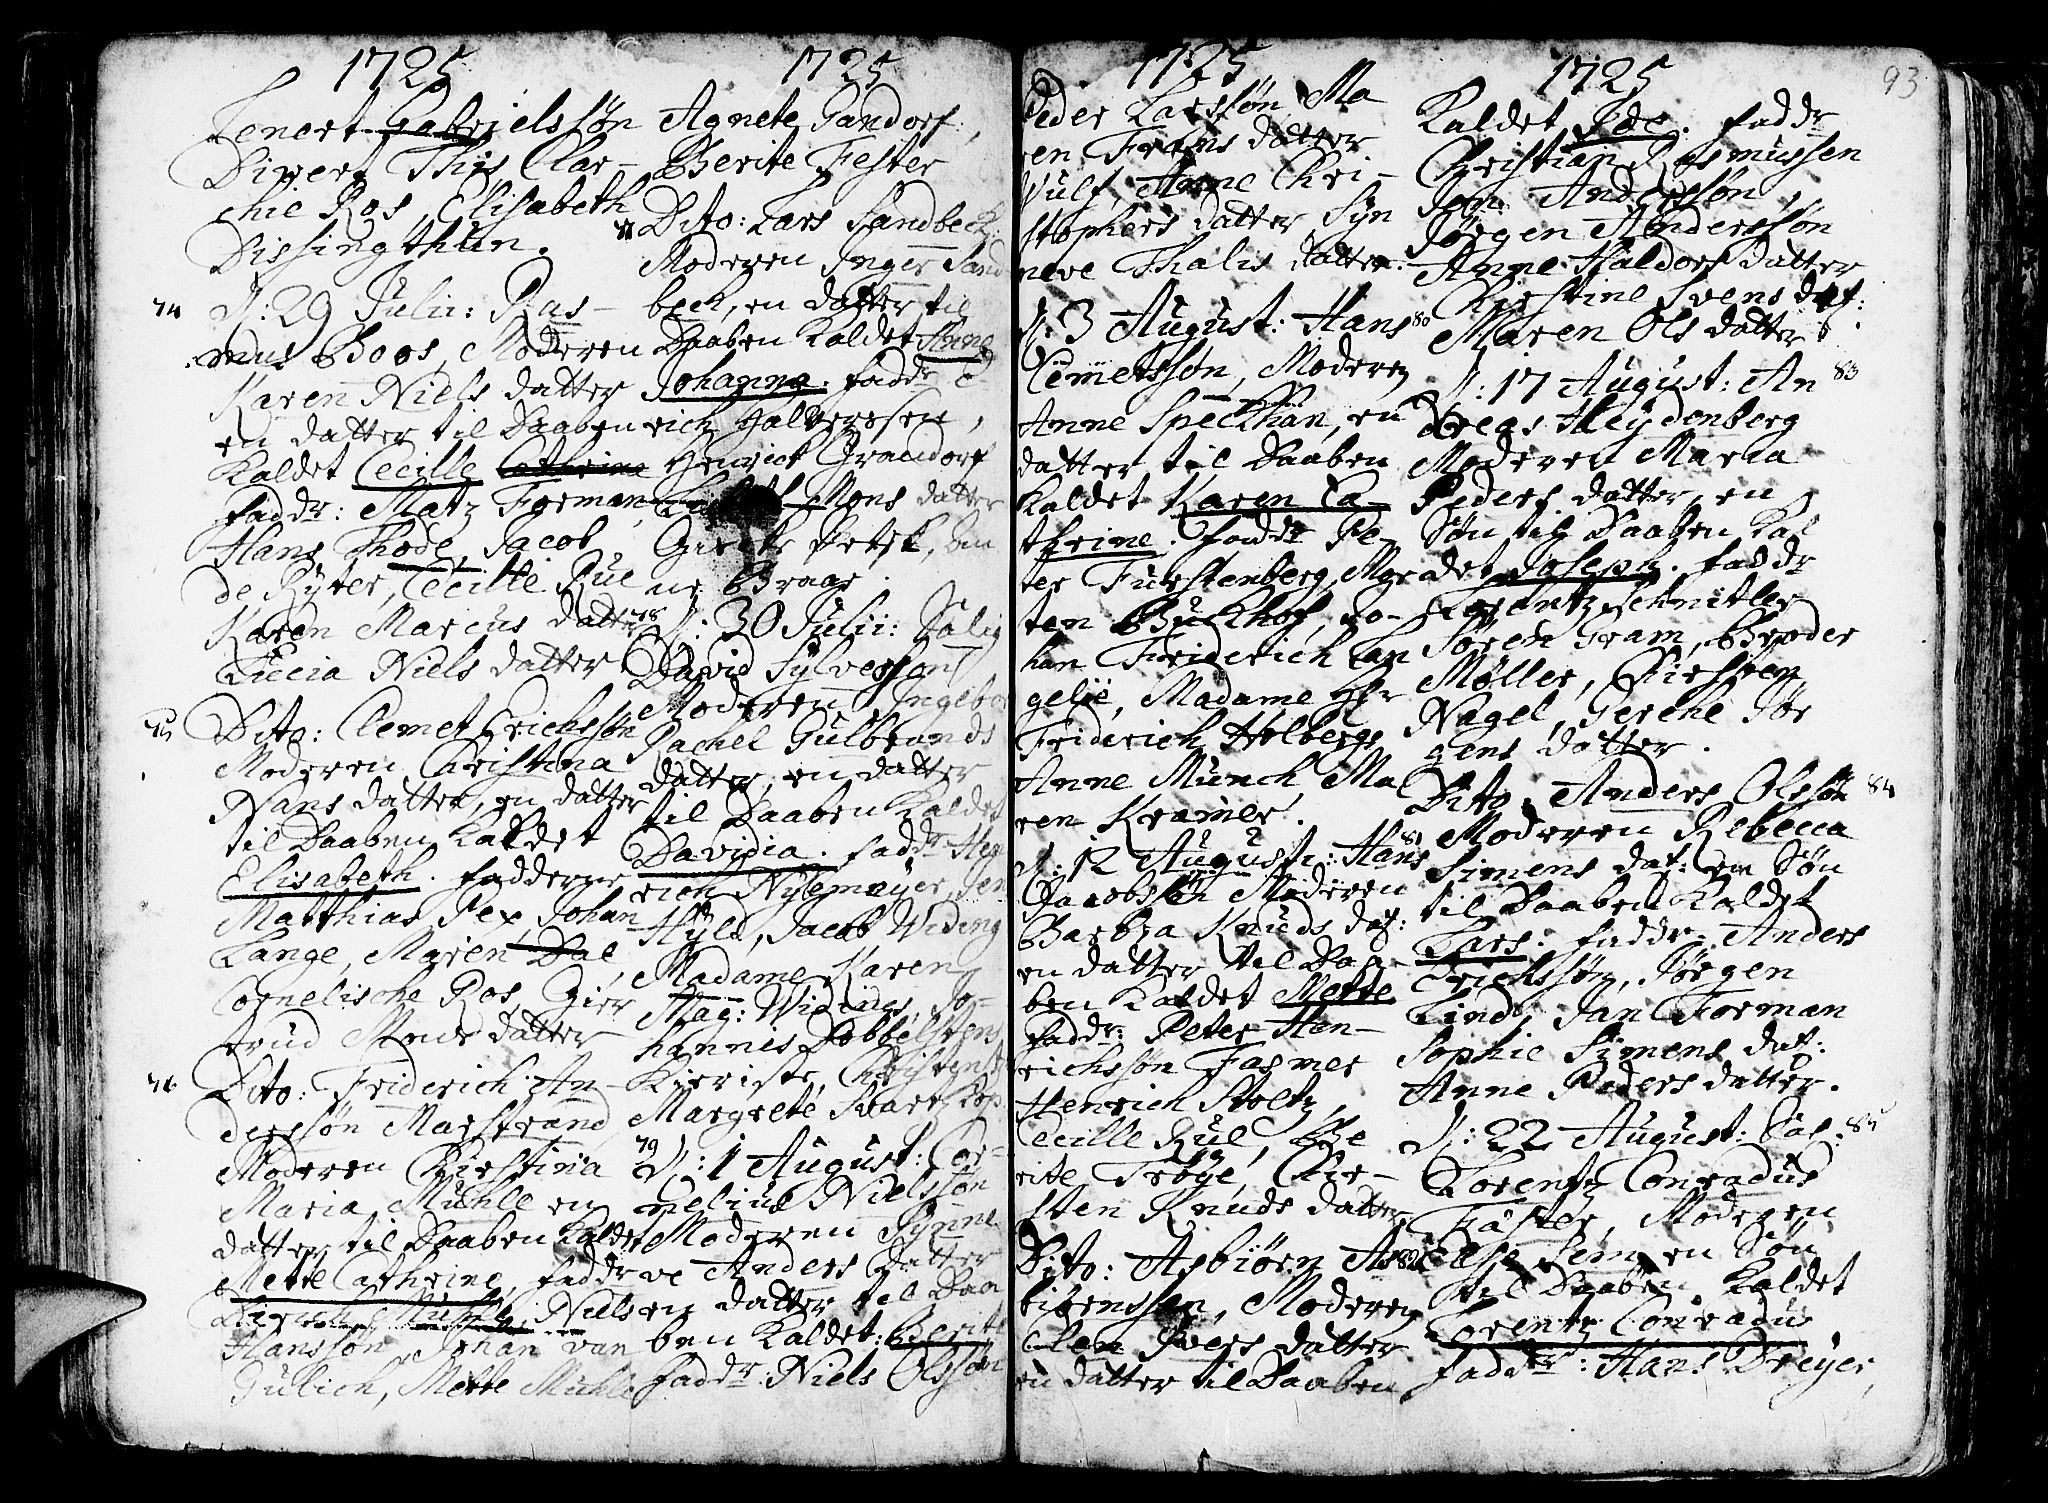 1725
Lenert Gabrielssøn
Diwert Thÿs Clar-
chie Ros, Elisabeth
Dissingthun.
74 D: 29 Julii: Ras-
mus Boos, Moderen
Karen Niels datter
en datter til Daaben
Kaldet Cecille Cathrine
faddr: Matz Forman
Hans Thode, Jacob
de Rÿter, Cecille Rue
Karen Marcus datter
Lucia Niels datter
75 Dito: Clemet Erichssøn
Moderen Christina
Hans datter, en datter
til Daaben Kaldet
Elisabeth. fadderne
Matthias Pex, Johan
Lange, Maren Dal
Cornelische Ros, Gier
trud Mons datter
76 Dito: Friderich An-
derssøn Marstrand
Moderen Christina
Maria Mühle en
datter til Daaben Kaldet
Mette Cathrine, faddr
Niels
Hanssøn, Johan van
Gülich, Mette Mühle
1725
Agnete Gandorf,
Berite Fester
Dito: Lars Sandbeck
Moderen Inger Sand
beck, en datter til
Daaben Kaldet Anne
Johanna. faddr
rich Halversen,
Henrich Grandorf
Mons datter
ne Braar.
78 D: 30 Julii: Salig
David Sÿlvesson
Moderen Ingebor
Rachel Gulbrands
datter, en datter
til Daaben Kaldet
Davidia. faddr Hen
rich Nÿlemeÿer, Jen
Hÿld, Jacob Widing
Madame Karen
Mag: Widings, Jo-
hannis Dobbelstens
Kieriste, Christense
Margrete Svartz Kop
79 D: 1 August: Cor-
nelius Nielssøn
Moderen Sÿnne
ve Anders datter
en datter til Daa
ben Kaldet: Berite
faddr: Niels Olssøn
1725
Peder Larssøn Ma
ren Frans datter
Wulf, Anne Chri-
stophers datter Sÿn
neve Thalis datter.
D: 3 August: Hans 80
Clemetssøn, Moderen
Anne Speckhan, en
datter til Daaben
Kaldet Karen Ca-
thrine. faddr Pe-
ter Furstenberg, Mor
ten Buckhof, Jo-
han Friderich Lan
gelie, Madame Hr
Friderich Holbergs
Anne Munch, Ma
ren Kramer.
D: 12 August: Hans 81
Jacobssøn Moderen
Barbra Knuds dat:
en datter til Daa-
ben Kaldet Mette
faddr: Peter Hen-
richssøn Fasmer
Henrich Stoltz,
Cecille Rue, Be
rite Trøÿe, Kir-
sten Knuds datter
Dito: Asbiørn As 82
biørnssøn, Moderen
Elen Ivers datter
en datter til Daaben
1725
93
Kaldet Ide. faddr
Christian Rasmussen
Jon Anderssøn,
Jørgen Anderssøn
Anne Haldorf datter
Christine Svens dat:
Maren Ols datter.
D: 17 August: An 83
dreas Heÿdenberg
Moderen Maria
Peders datter, en
Søn til Daaben Kal
det Joseph. faddr
Lorentz Schnitler
Søren Gram, Broder
Møller, Kirsten
Nagel, Gerche Jør
gens datter.
Dito: Anders Olssøn 84
Moderen Rebecca
Simens dat: en Søn
til Daaben Kaldet
Lars. faddr: Anders
Erichssøn, Jørgen
Lind, Jan Forman
Sophie Simens dat:
Anne Peders datter.
D: 22 August: Sal: 85
Lorentz Conradus
Fäster, Moderen
Else Sem, en Søn
til Daaben Kaldet
Lorentz Conradus
faddr: Hans Dreÿer,